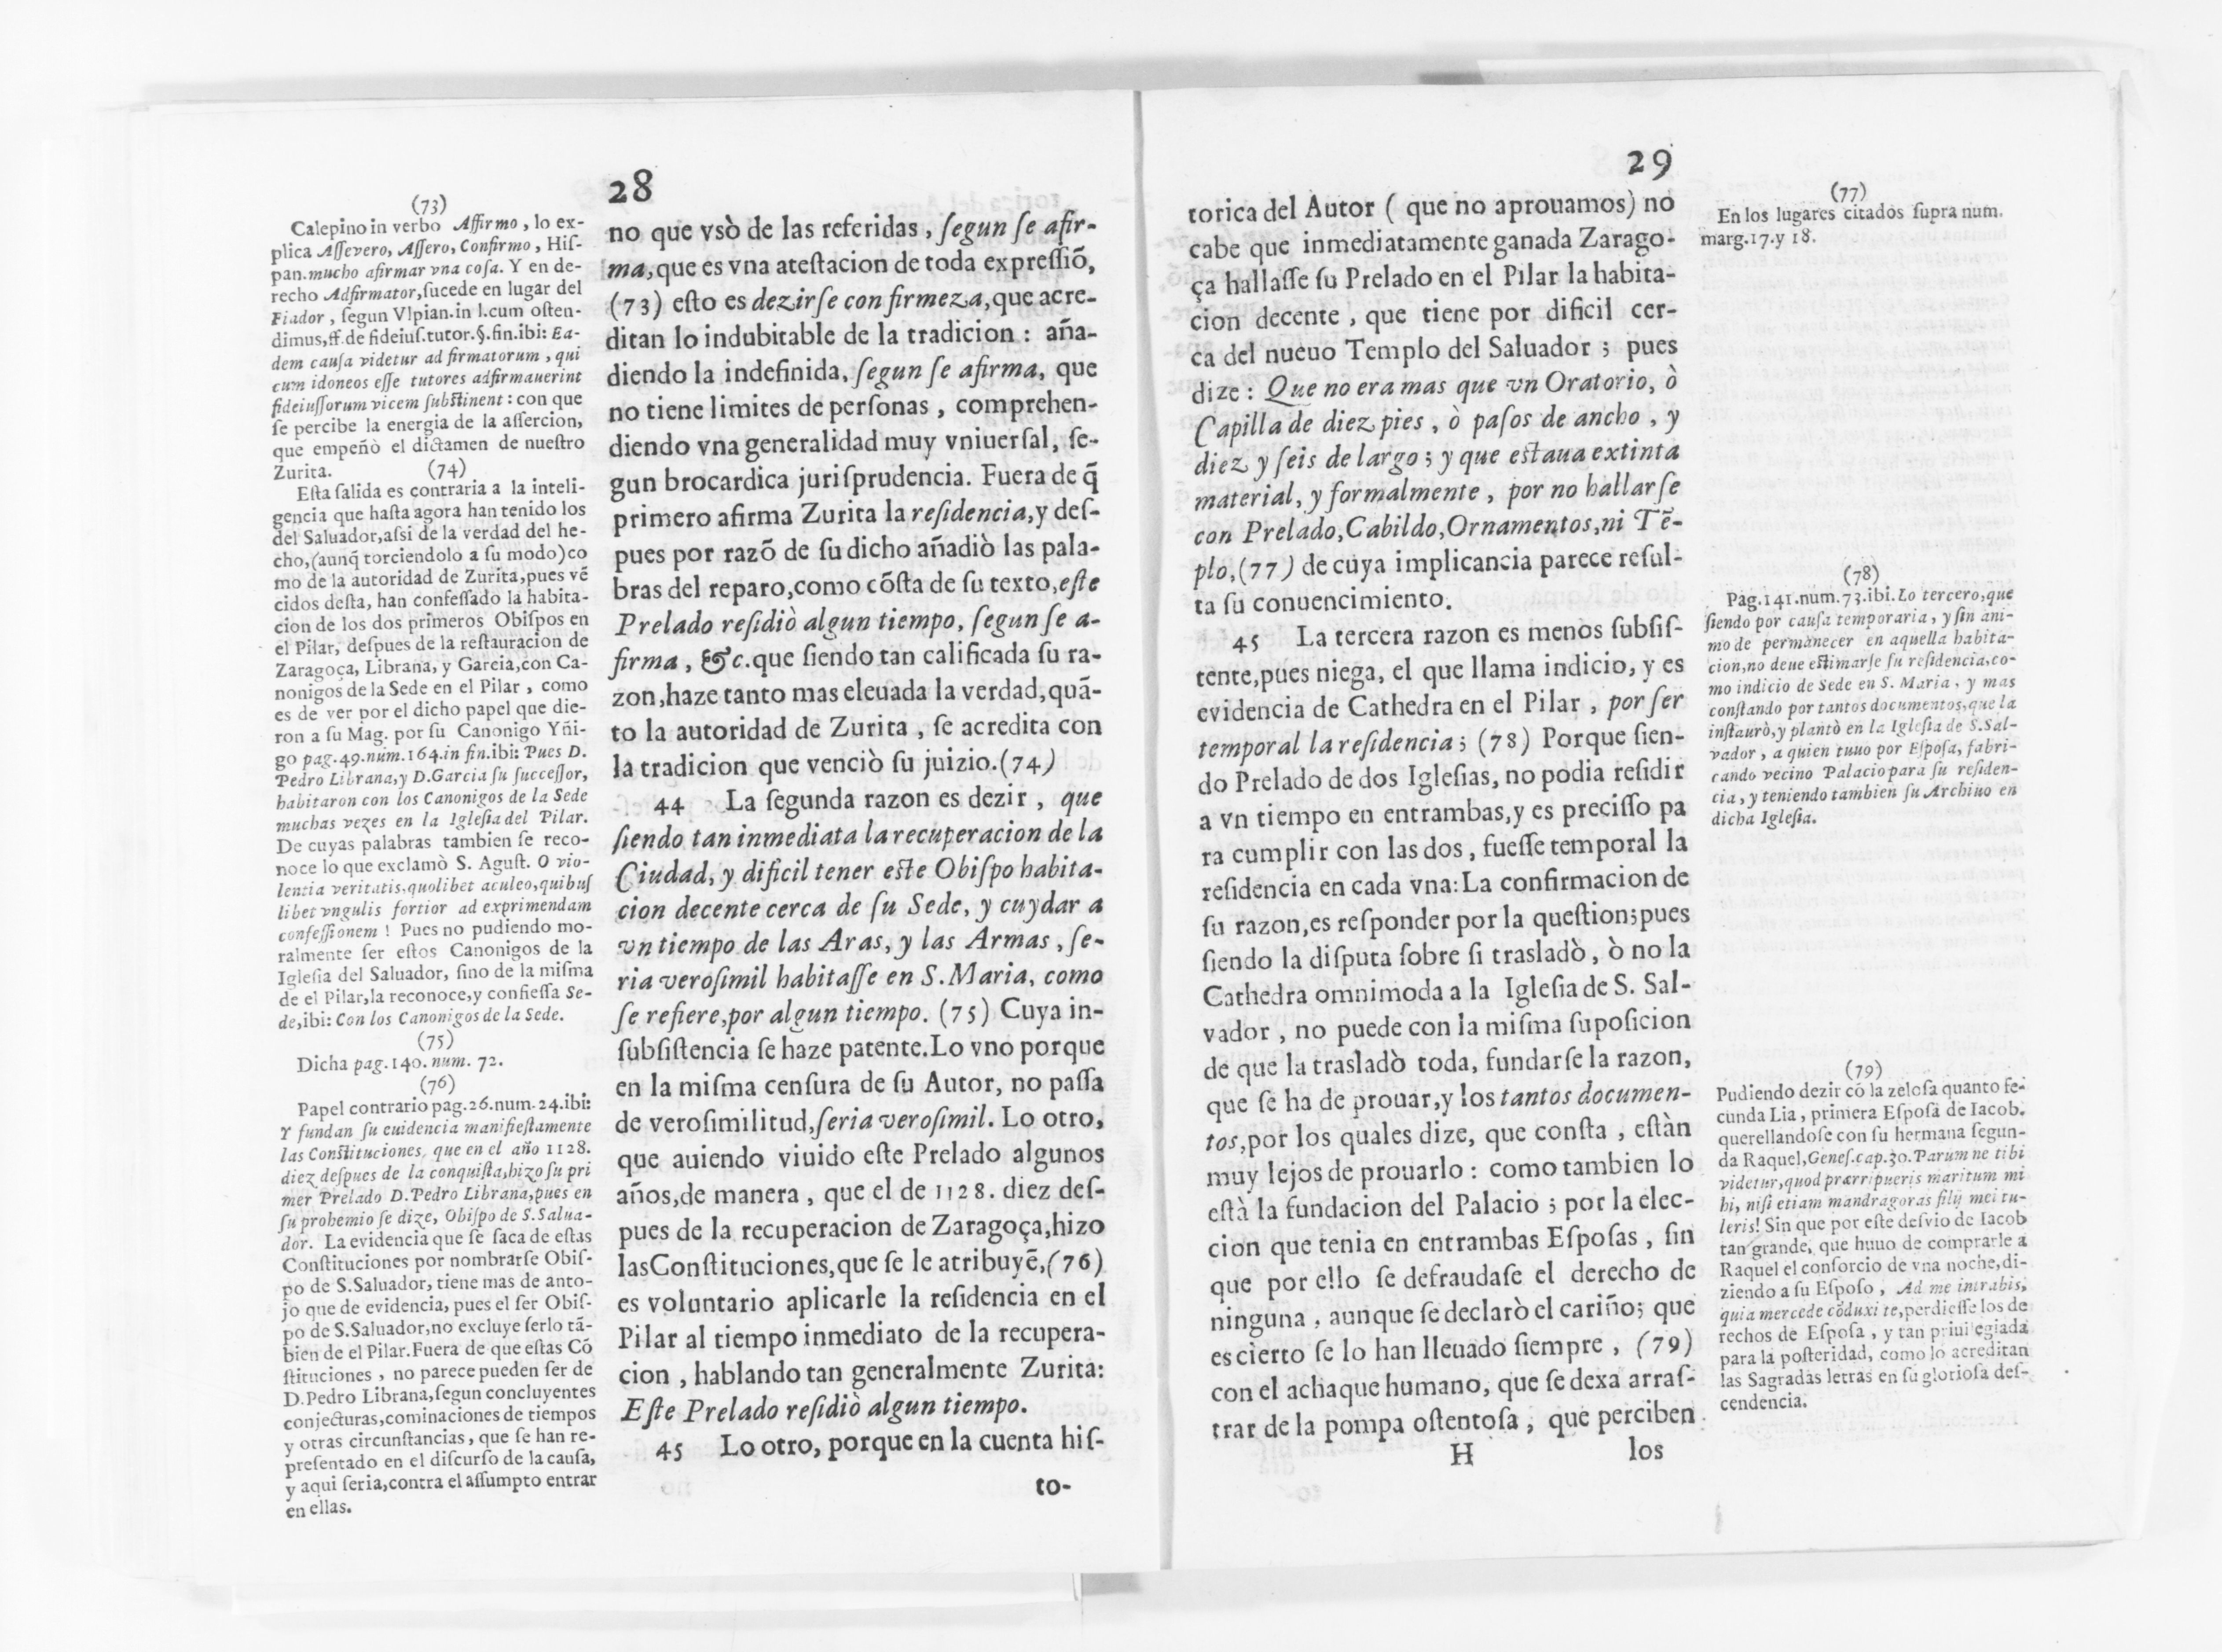 28
(73)
Calepino in verbo Affirmo, lo ex-
plica Aſſevero, Aſſero, Confirmo, Hiſ-
pan. mucho afirmar vna coſa. Y en de-
recho Adfirmator, ſucede en lugar del
Fiador, ſegun Vlpian. in l. cum oſten-
dimus, ff. de fideiuſ. tutor. §. fin. ibi: Ea-
dem cauſa videtur ad firmatorum, qui
cum idoneos eſſe tutores adfirmauerint
fideiuſſorum vicem ſubſtinent: con que
ſe percibe la energia de la aſſercion,
que empeñò el dictamen de nueſtro
Zurita.
(74)
Eſta ſalida es contraria a la inteli-
gencia que haſta agora han tenido los
del Saluador, aſsi de la verdad del he-
cho, (aunq̃ torciendolo a ſu modo) co
mo de la autoridad de Zurita, pues vẽ
cidos deſta, han confeſſado la habita-
cion de los dos primeros Obiſpos en
el Pilar, deſpues de la reſtauracion de
Zaragoça, Librana, y Garcia, con Ca-
nonigos de la Sede en el Pilar, como
es de ver por el dicho papel que die-
ron a ſu Mag. por ſu Canonigo Yñi-
go pag. 49. num. 164. in fin. ibi: Pues D.
Pedro Librana, y D. Garcia ſu ſucceſſor,
habitaron con los Canonigos de la Sede
muchas vezes en la Igleſia del Pilar.
De cuyas palabras tambien ſe reco-
noce lo que exclamò S. Aguſt. O vio-
lentia veritatis, quolibet aculeo, quibuſ
libet vngulis fortior ad exprimendam
confeſſionem! Pues no pudiendo mo-
ralmente ſer eſtos Canonigos de la
Igleſia del Saluador, ſino de la miſma
de el Pilar, la reconoce, y confieſſa Se-
de, ibi: Con los Canonigos de la Sede.
(75)
Dicha pag. 140. num. 72.
(76)
Papel contrario pag. 26. num. 24. ibi:
Y fundan ſu euidencia manifieſtamente
las Conſtituciones, que en el año 1128.
diez deſpues de la conquiſta, hizo ſu pri
mer Prelado D. Pedro Librana, pues en
ſu prohemio ſe dize, Obiſpo de S. Salua-
dor. La evidencia que ſe ſaca de eſtas
Conſtituciones por nombrarſe Obiſ-
po de S. Saluador, tiene mas de anto-
jo que de evidencia, pues el ſer Obiſ-
po de S. Saluador, no excluye ſerlo tã-
bien de el Pilar. Fuera de que eſtas Cõ
ſtituciones, no parece pueden ſer de
D. Pedro Librana, ſegun concluyentes
conjecturas, cominaciones de tiempos
y otras circunſtancias, que ſe han re-
preſentado en el diſcurſo de la cauſa,
y aqui ſeria, contra el aſſumpto entrar
en ellas.
no que vsò de las referidas, ſegun ſe afir-
ma, que es vna ateſtacion de toda expreſſiõ,
(73) eſto es dezirſe con firmeza, que acre-
ditan lo indubitable de la tradicion: aña-
diendo la indefinida, ſegun ſe afirma, que
no tiene limites de perſonas, comprehen-
diendo vna generalidad muy vniuerſal, ſe-
gun brocardica juriſprudencia. Fuera de q̃
primero afirma Zurita la reſidencia, y deſ-
pues por razõ de ſu dicho añadiò las pala-
bras del reparo, como cõſta de ſu texto, eſte
Prelado reſidiò algun tiempo, ſegun ſe a-
firma, &c. que ſiendo tan calificada ſu ra-
zon, haze tanto mas eleuada la verdad, quã-
to la autoridad de Zurita, ſe acredita con
la tradicion que venciò ſu juizio. (74)
44 La ſegunda razon es dezir, que
ſiendo tan inmediata la recuperacion de la
Ciudad, y dificil tener eſte Obiſpo habita-
cion decente cerca de ſu Sede, y cuydar a
vn tiempo de las Aras, y las Armas, ſe-
ria veroſimil habitaſſe en S. Maria, como
ſe refiere, por algun tiempo. (75) Cuya in-
ſubſiſtencia ſe haze patente. Lo vno porque
en la miſma cenſura de ſu Autor, no paſſa
de veroſimilitud, ſeria veroſimil. Lo otro,
que auiendo viuido eſte Prelado algunos
años, de manera, que el de 1128. diez deſ-
pues de la recuperacion de Zaragoça, hizo
las Conſtituciones, que ſe le atribuyẽ, (76)
es voluntario aplicarle la reſidencia en el
Pilar al tiempo inmediato de la recupera-
cion, hablando tan generalmente Zurita:
Eſte Prelado reſidiò algun tiempo.
45 Lo otro, porque en la cuenta hiſ-
to-
29
torica del Autor ( que no aprouamos) no
cabe que inmediatamente ganada Zarago-
ça hallaſſe ſu Prelado en el Pilar la habita-
cion decente, que tiene por dificil cer-
ca del nueuo Templo del Saluador; pues
dize: Que no era mas que vn Oratorio, ò
Capilla de diez pies, ò paſos de ancho, y
diez y ſeis de largo; y que eſtaua extinta
material, y formalmente, por no hallarſe
con Prelado, Cabildo, Ornamentos, ni Tẽ-
plo, (77) de cuya implicancia parece reſul-
ta ſu conuencimiento.
45 La tercera razon es menos ſubſiſ-
tente, pues niega, el que llama indicio, y es
evidencia de Cathedra en el Pilar, por ſer
temporal la reſidencia; (78) Porque ſien-
do Prelado de dos Igleſias, no podia reſidir
a vn tiempo en entrambas, y es preciſſo pa
ra cumplir con las dos, fueſſe temporal la
reſidencia en cada vna: La confirmacion de
ſu razon, es reſponder por la queſtion; pues
ſiendo la diſputa ſobre ſi trasladò, ò no la
Cathedra omnimoda a la Igleſia de S. Sal-
vador, no puede con la miſma ſupoſicion
de que la trasladò toda, fundarſe la razon,
que ſe ha de prouar, y los tantos documen-
tos, por los quales dize, que conſta, eſtàn
muy lejos de prouarlo: como tambien lo
eſtà la fundacion del Palacio; por la elec-
cion que tenia en entrambas Eſpoſas, ſin
que por ello ſe defraudaſe el derecho de
ninguna, aunque ſe declarò el cariño; que
es cierto ſe lo han lleuado ſiempre, (79)
con el achaque humano, que ſe dexa arraſ-
trar de la pompa oſtentoſa, que perciben
H los
(77)
En los lugares citados ſupra num.
marg. 17. y 18.
(78)
Pag. 141. num. 73. ibi. Lo tercero, que
ſiendo por cauſa temporaria, y ſin ani-
mo de permanecer en aquella habita-
cion, no deue eſtimarſe ſu reſidencia, co-
mo indicio de Sede en S. Maria, y mas
conſtando por tantos documentos, que la
inſtaurò, y plantò en la Igleſia de S. Sal-
vador, a quien tuuo por Eſpoſa, fabri-
cando vecino Palacio para ſu reſiden-
cia, y teniendo tambien ſu Archiuo en
dicha Igleſia.
(79)
Pudiendo dezir cõ la zeloſa quanto fe-
cunda Lia, primera Eſpoſa de Iacob.
querellandoſe con ſu hermana ſegun-
da Raquel, Geneſ. cap. 30. Parum ne tibi
videtur, quod prærripueris maritum mi
hi, niſi etiam mandragoras filij mei tu-
leris! Sin que por eſte deſvio de Iacob
tan grande, que huuo de comprarle a
Raquel el conſorcio de vna noche, di-
ziendo a ſu Eſpoſo, Ad me intrabis,
quia mercede cõduxi te, perdieſſe los de
rechos de Eſpoſa, y tan priuilegiada
para la poſteridad, como lo acreditan
las Sagradas letras en ſu glorioſa deſ-
cendencia.